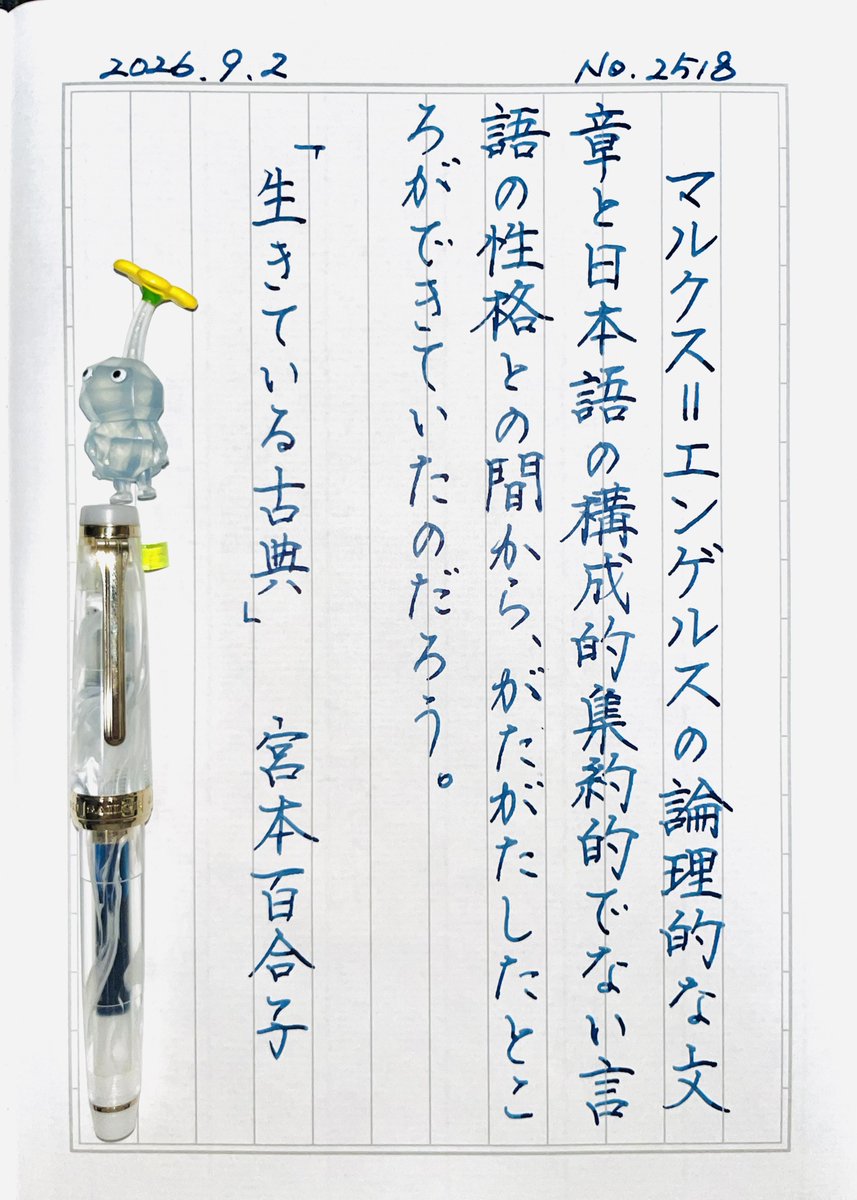 2026.9.2
No.2518
マルクス＝エンゲルスの論理的な文
章と日本語の構成的集約的でない言
語の性格との間から、がたがたしたとこ
ろができていたのだろう。
「生きている古典」 宮本百合子